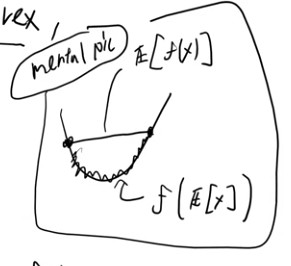 vex
mental pic
E[f(x)]
f(E[x])